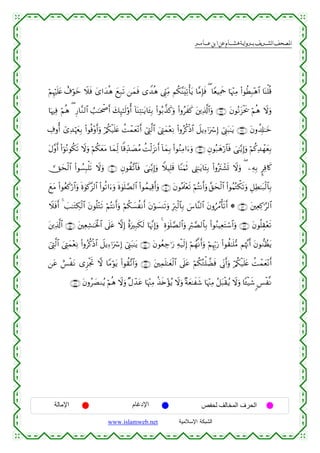 المصحف الشريف برواية هشام عن ابن عامر
قُلْنَا ٱهْبِطُوا۟ مِنْهَا جَمِيعًا ۖ فَإِمَّا يَأْتِيَنَّكُم مِّنِّى هُدًى فَمَن تَبِعَ هُدَاىَ فَلَا خَوْفٌ عَلَيْهِمْ
وَلَا هُمْ يَحْزَنُونَ ۝ وَٱلَّذِينَ كَفَرُوا۟ وَكَذَّبُوا۟ بِـَٔايَـٰتِنَآ أُو۟لَـٰٓئِكَ أَصْحَـٰبُ ٱلنَّارِ ۖ هُمْ فِيهَا
خَـٰلِدُونَ ۝ يَـٰبَنِىٓ إِسْرَٰٓءِيلَ ٱذْكُرُوا۟ نِعْمَتِىَ ٱلَّتِىٓ أَنْعَمْتُ عَلَيْكُمْ وَأَوْفُوا۟ بِعَهْدِىٓ أُوفِ
بِعَهْدِكُمْ وَإِيَّـٰىَ فَٱرْهَبُونِ ۝ وَءَامِنُوا۟ بِمَآ أَنزَلْتُ مُصَدِّقًا لِّمَا مَعَكُمْ وَلَا تَكُونُوٓا۟ أَوَّلَ
كَافِرٍۭ بِهِۦ ۖ وَلَا تَشْتَرُوا۟ بِـَٔايَـٰتِى ثَمَنًا قَلِيلًا وَإِيَّـٰىَ فَٱتَّقُونِ ۝ وَلَا تَلْبِسُوا۟ ٱلْحَقَّ
بِٱلْبَـٰطِلِ وَتَكْتُمُوا۟ ٱلْحَقَّ وَأَنتُمْ تَعْلَمُونَ ۝ وَأَقِيمُوا۟ ٱلصَّلَوٰةَ وَءَاتُوا۟ ٱلزَّكَوٰةَ وَٱرْكَعُوا۟ مَعَ
ٱلرَّٰكِعِينَ ۝ ۞ أَتَأْمُرُونَ ٱلنَّاسَ بِٱلْبِرِّ وَتَنسَوْنَ أَنفُسَكُمْ وَأَنتُمْ تَتْلُونَ ٱلْكِتَـٰبَ ۚ أَفَلَا
تَعْقِلُونَ ۝ وَٱسْتَعِينُوا۟ بِٱلصَّبْرِ وَٱلصَّلَوٰةِ ۚ وَإِنَّهَا لَكَبِيرَةٌ إِلَّا عَلَى ٱلْخَـٰشِعِينَ ۝ ٱلَّذِينَ
يَظُنُّونَ أَنَّهُم مُّلَـٰقُوا۟ رَبِّهِمْ وَأَنَّهُمْ إِلَيْهِ رَٰجِعُونَ ۝ يَـٰبَنِىٓ إِسْرَٰٓءِيلَ ٱذْكُرُوا۟ نِعْمَتِىَ ٱلَّتِىٓ
أَنْعَمْتُ عَلَيْكُمْ وَأَنِّى فَضَّلْتُكُمْ عَلَى ٱلْعَـٰلَمِينَ ۝ وَٱتَّقُوا۟ يَوْمًا لَّا تَجْزِى نَفْسٌ عَن
نَّفْسٍ شَيْـًٔا وَلَا يُقْبَلُ مِنْهَا شَفَـٰعَةٌ وَلَا يُؤْخَذُ مِنْهَا عَدْلٌ وَلَا هُمْ يُنصَرُونَ ۝
الحرف المخالف لحفص الإدغام الإمالة
الشبكة الإسلامية www.islamweb.net